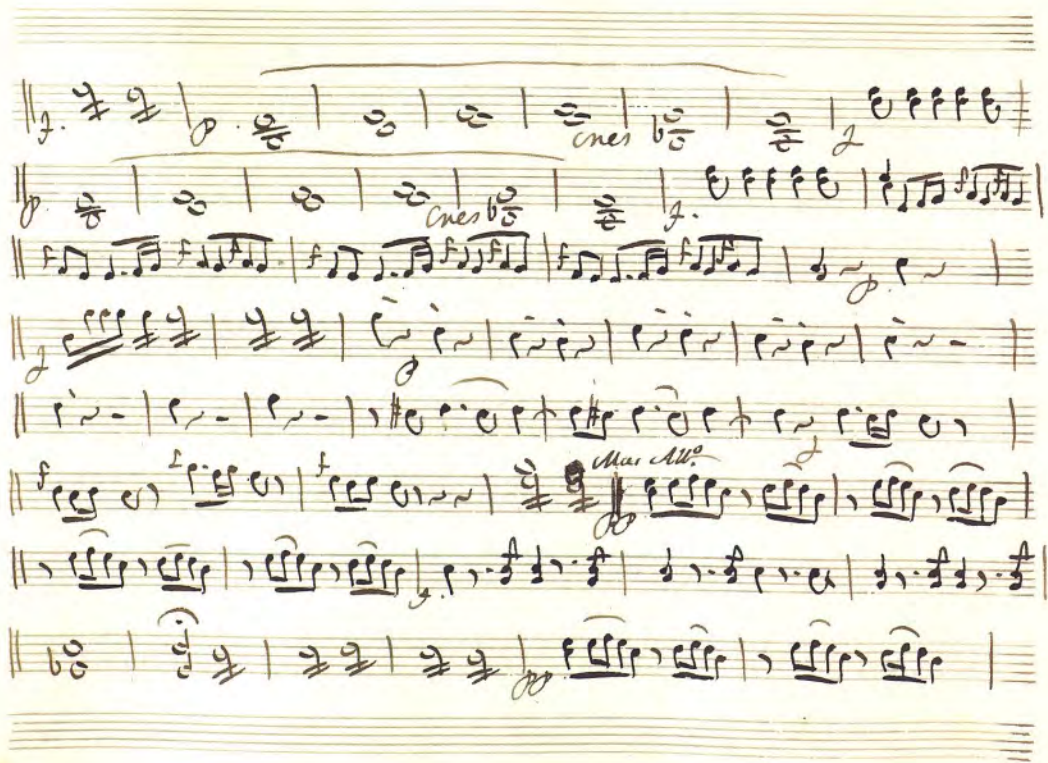 f. p. cres f
p. cres f.
f f f f f f f f f f p.
f p
f
f f f Mas All.º pp
f.
pp